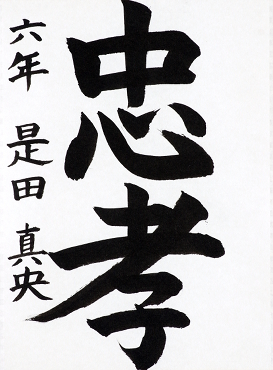 忠孝
六年 是田 真央